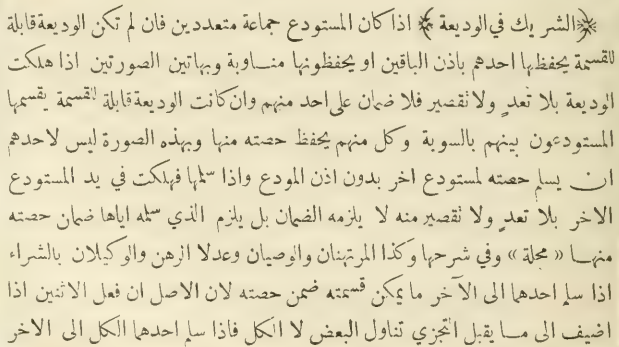 ﴿الشريك في الوديعة﴾ اذا كان المستودع جماعة متعددين فان لم تكن الوديعة قابلة
للقسمة يحفظها احدهم باذن الباقين او يحفظونها مناوبة وبهاتين الصورتين اذا هلكت
الوديعة بلا تعد ولا تقصير فلا ضمان على احد منهم وان كانت الوديعة قابلة للقسمة يقسمها
المستودعون بينهم بالسوية وكل منهم يحفظ حصته منها وبهذه الصورة ليس لاحدهم
ان يسلم حصته لمستودع اخر بدون اذن المودع واذا سلمها فهلكت في يد المستودع
الاخر بلا تعد ولا تقصير منه لا يلزمه الضمان بل يلزم الذي سلمه اياها ضمان حصته
منها «مجلة» وفي شرحها وكذا المرتهنان والوصيان وعدلا الرهن والوكيلان بالشراء
اذا سلم احدهما الى الآخر ما يمكن قسمته ضمن حصته لان الاصل ان فعل الاثنين اذا
اضيف الى ما يقبل التجزي تناول البعض لا الكل فاذا سلم احدهما الكل الى الاخر